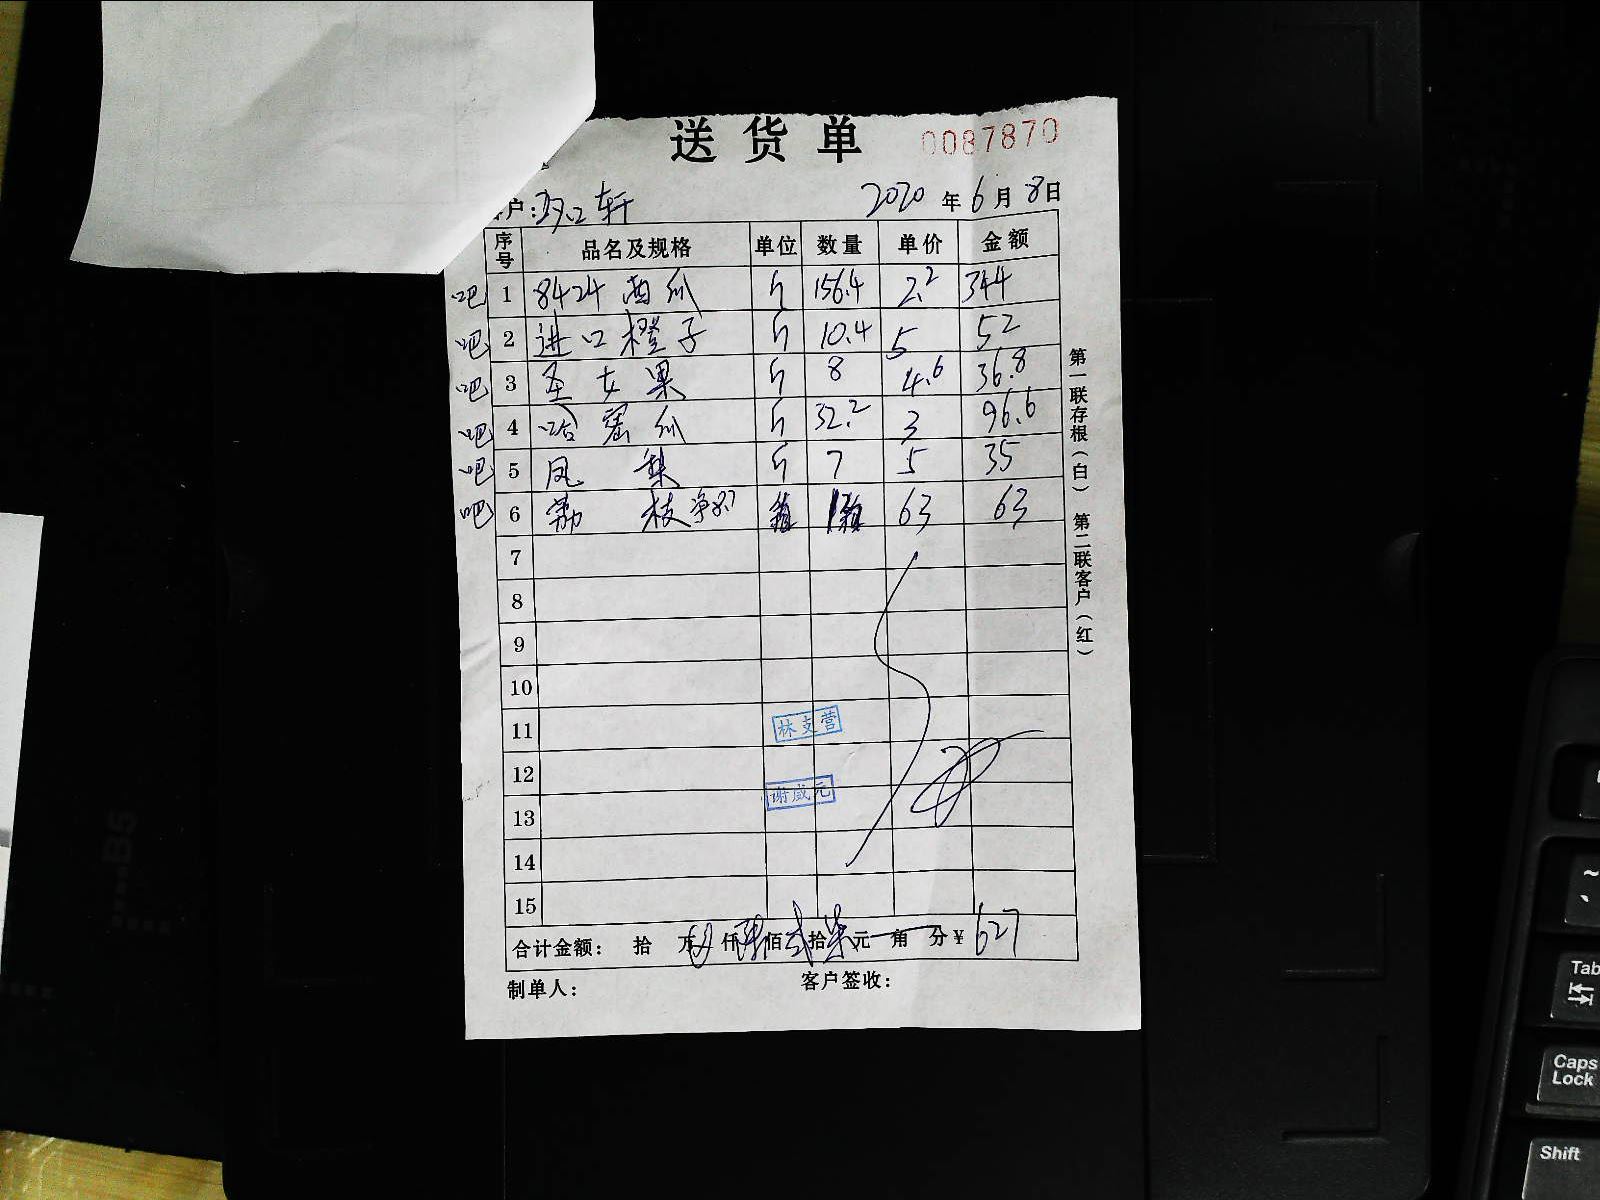 送货单 0087870
户: 轩 2020年6月8日
序号 品名及规格 单位 数量 单价 金额
吧 1 8424西瓜 斤 156.4 2.2 344
吧 2 进口橙子 斤 10.4 5 52
吧 3 圣女果 斤 8 4.6 36.8
吧 4 哈密瓜 斤 32.2 3 96.6
吧 5 凤梨 斤 7 5 35
吧 6 荔枝 63 63
7
8
9
10
11 林支营
12
13 谢威元
14
15
合计金额: 拾 万 仟 陆佰弍拾柒元 角 分 ¥ 627
制单人: 客户签收:
第一联存根(白) 第二联客户(红)
B5
~
Tab
Caps Lock
Shift